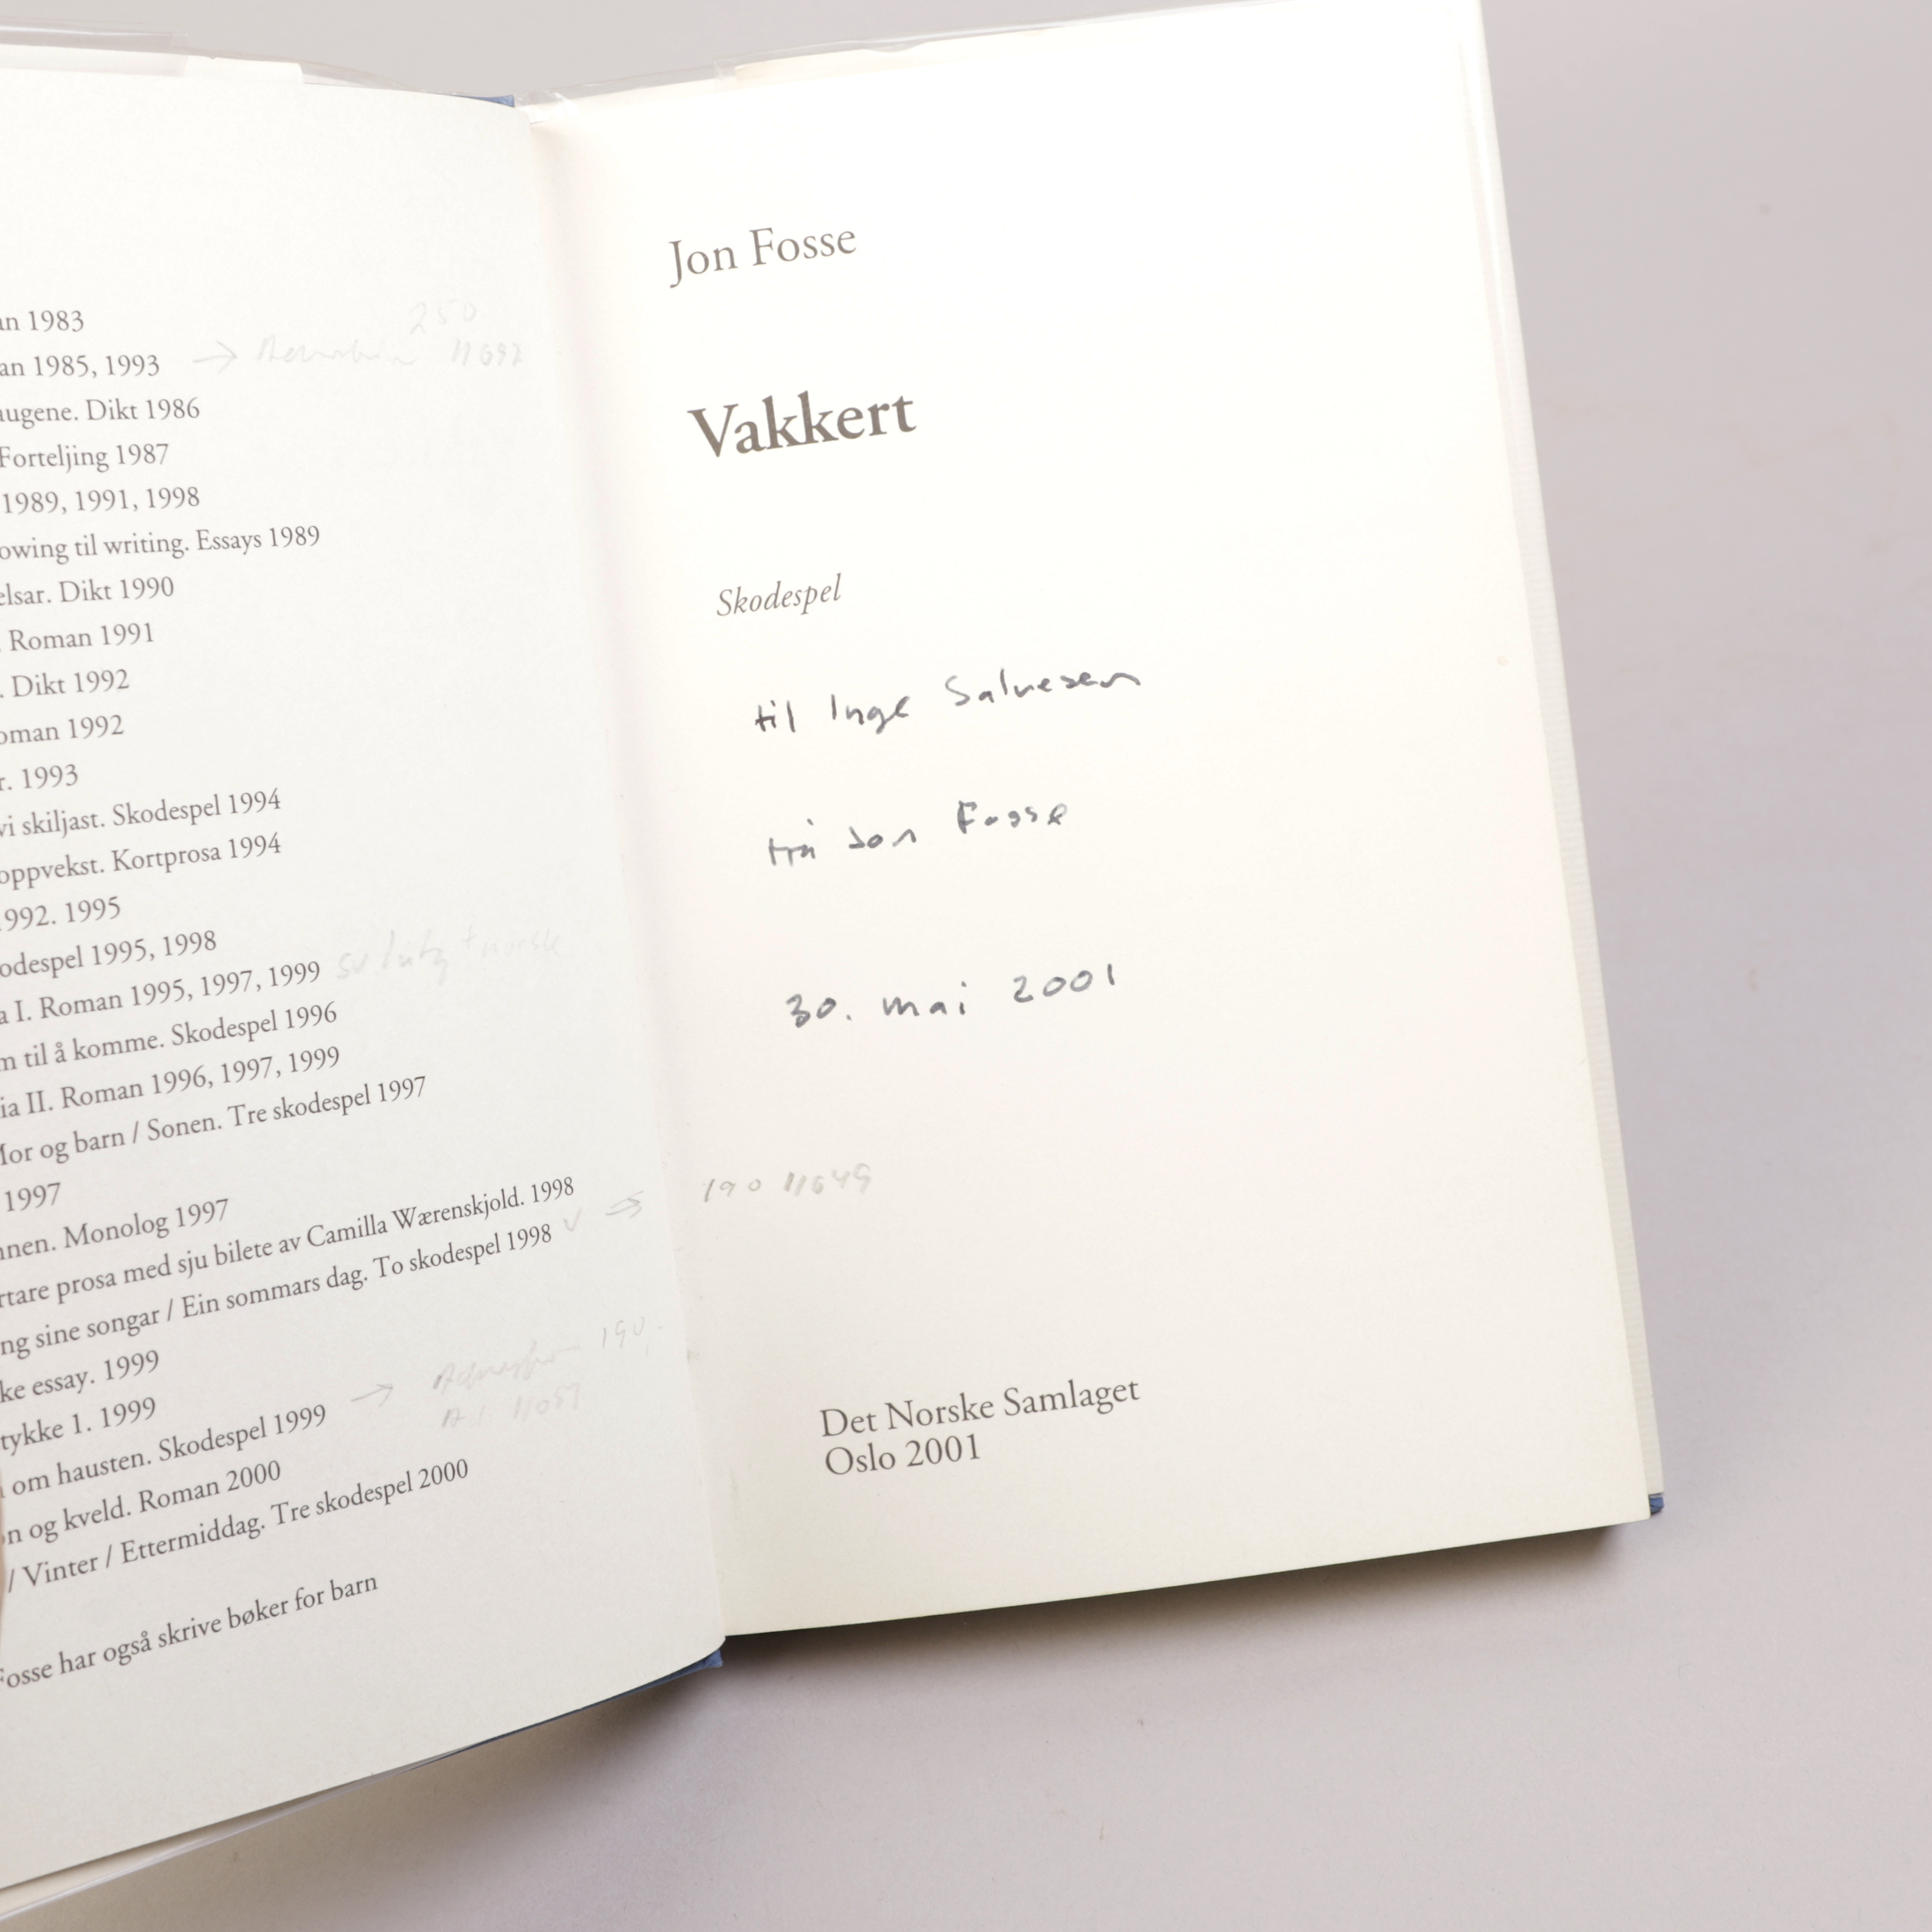 an 1983
250
an 1985, 1993 → 11692
augene. Dikt 1986
Forteljing 1987
1989, 1991, 1998
owing til writing. Essays 1989
elsar. Dikt 1990
. Roman 1991
. Dikt 1992
oman 1992
r. 1993
vi skiljast. Skodespel 1994
oppvekst. Kortprosa 1994
1992. 1995
odespel 1995, 1998
a I. Roman 1995, 1997, 1999 + norske
m til å komme. Skodespel 1996
ia II. Roman 1996, 1997, 1999
Mor og barn / Sonen. Tre skodespel 1997
1997
nnen. Monolog 1997
rtare prosa med sju bilete av Camilla Wærenskjold. 1998
ng sine songar / Ein sommars dag. To skodespel 1998
ke essay. 1999
tykke 1. 1999
om hausten. Skodespel 1999 →
n og kveld. Roman 2000
/ Vinter / Ettermiddag. Tre skodespel 2000
Fosse har også skrive bøker for barn
Jon Fosse
Vakkert
Skodespel
til Inge Salvesen
frå Jon Fosse
30. mai 2001
190 11649
Det Norske Samlaget
Oslo 2001